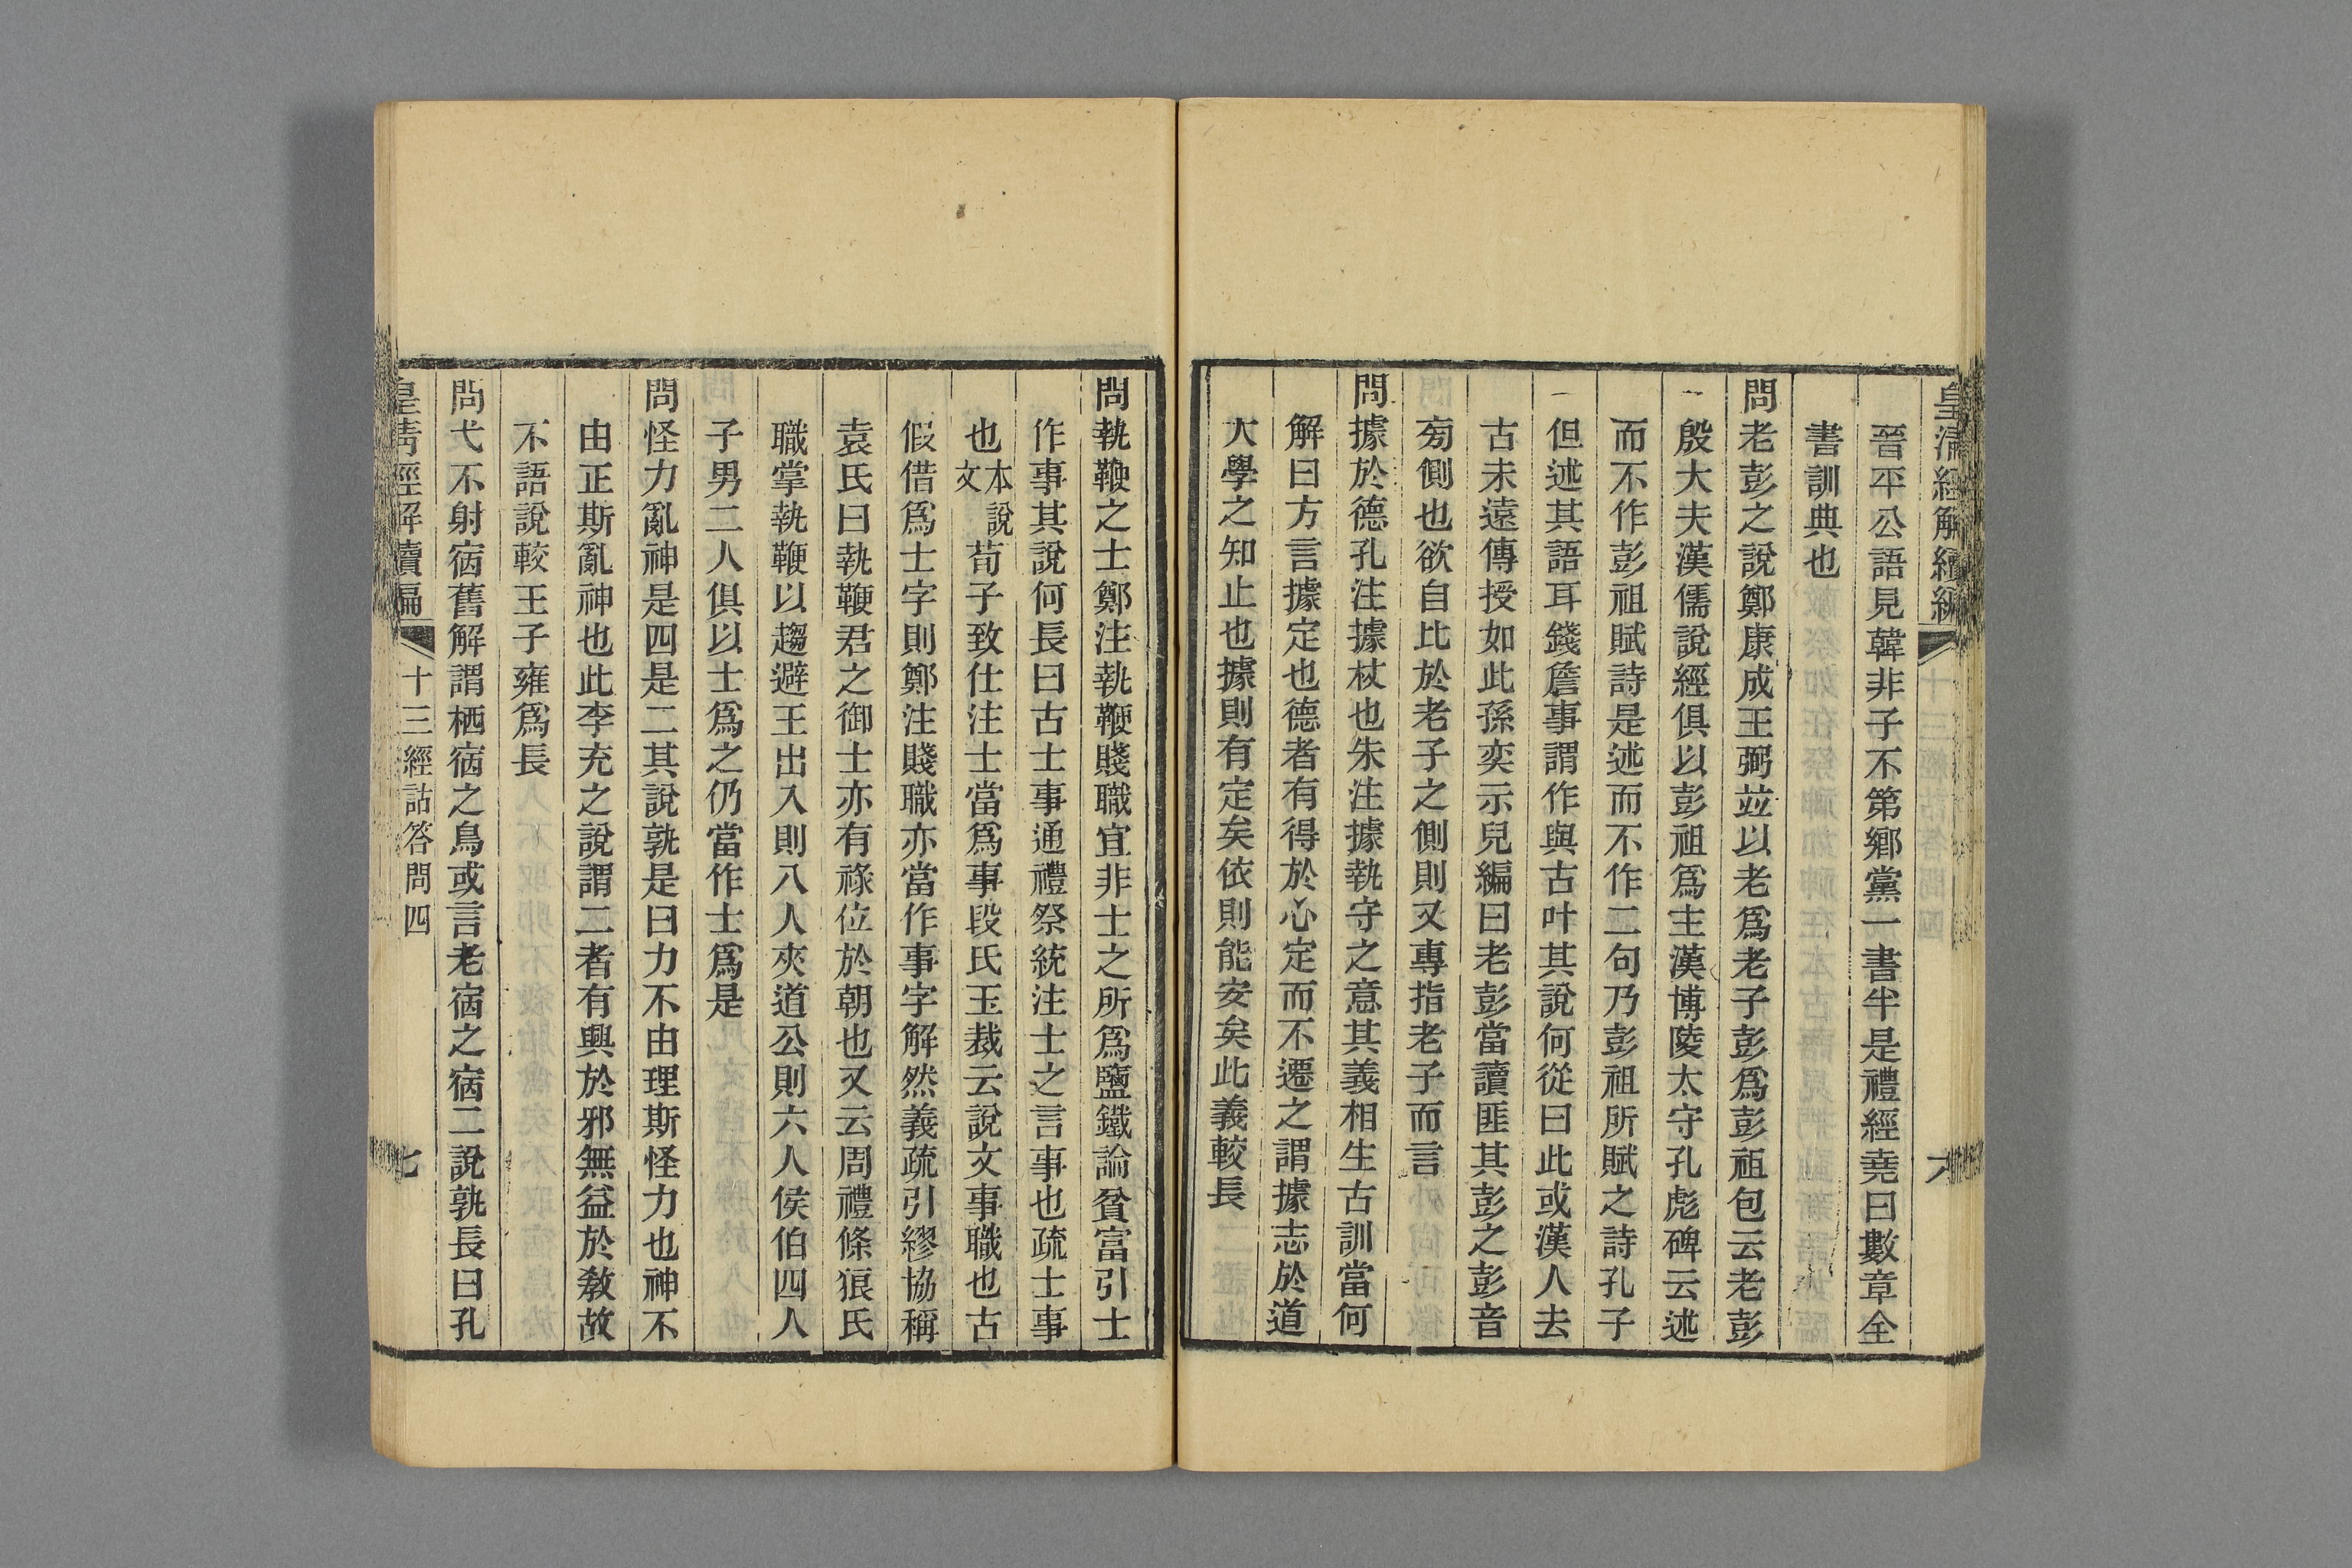 皇清經解續編
六
晉平公語見韓非子不第鄉黨一書半是禮經堯曰數章全
書訓典也
問老彭之說鄭康成王弼竝以老爲老子彭爲彭祖包云老彭
殷大夫漢儒說經俱以彭祖爲主漢博陵太守孔彪碑云述
而不作彭祖賦詩是述而不作二句乃彭祖所賦之詩孔子
但述其語耳錢詹事謂作與古叶其說何從曰此或漢人去
古未遠傳授如此孫奕示兒編曰老彭當讀匪其彭之彭音
旁側也欲自比於老子之側則又專指老子而言
問據於德孔注據杖也朱注據執守之意其義相生古訓當何
解曰方言據定也德者有得於心定而不遷之謂據志於道
大學之知止也據則有定矣依則能安矣此義較長
問執鞭之士鄭注執鞭賤職宜非士之所爲鹽鐵論貧富引士
作事其說何長曰古士事通禮祭統注士之言事也疏士事
也本說文荀子致仕注士當爲事段氏玉裁云說文事職也古
假借爲士字則鄭注賤職亦當作事字解然義疏引繆協稱
袁氏曰執鞭君之御士亦有祿位於朝也又云周禮條狼氏
職掌執鞭以趨避王出入則八人夾道公則六人侯伯四人
子男二人俱以士爲之仍當作士爲是
問怪力亂神是四是二其說孰是曰力不由理斯怪力也神不
由正斯亂神也此李充之說謂二者有興於邪無益於敎故
不語說較王子雍爲長
問弋不射宿舊解謂栖宿之鳥或言老宿之宿二說孰長曰孔
皇清經解續編
十三經詁答問四
七